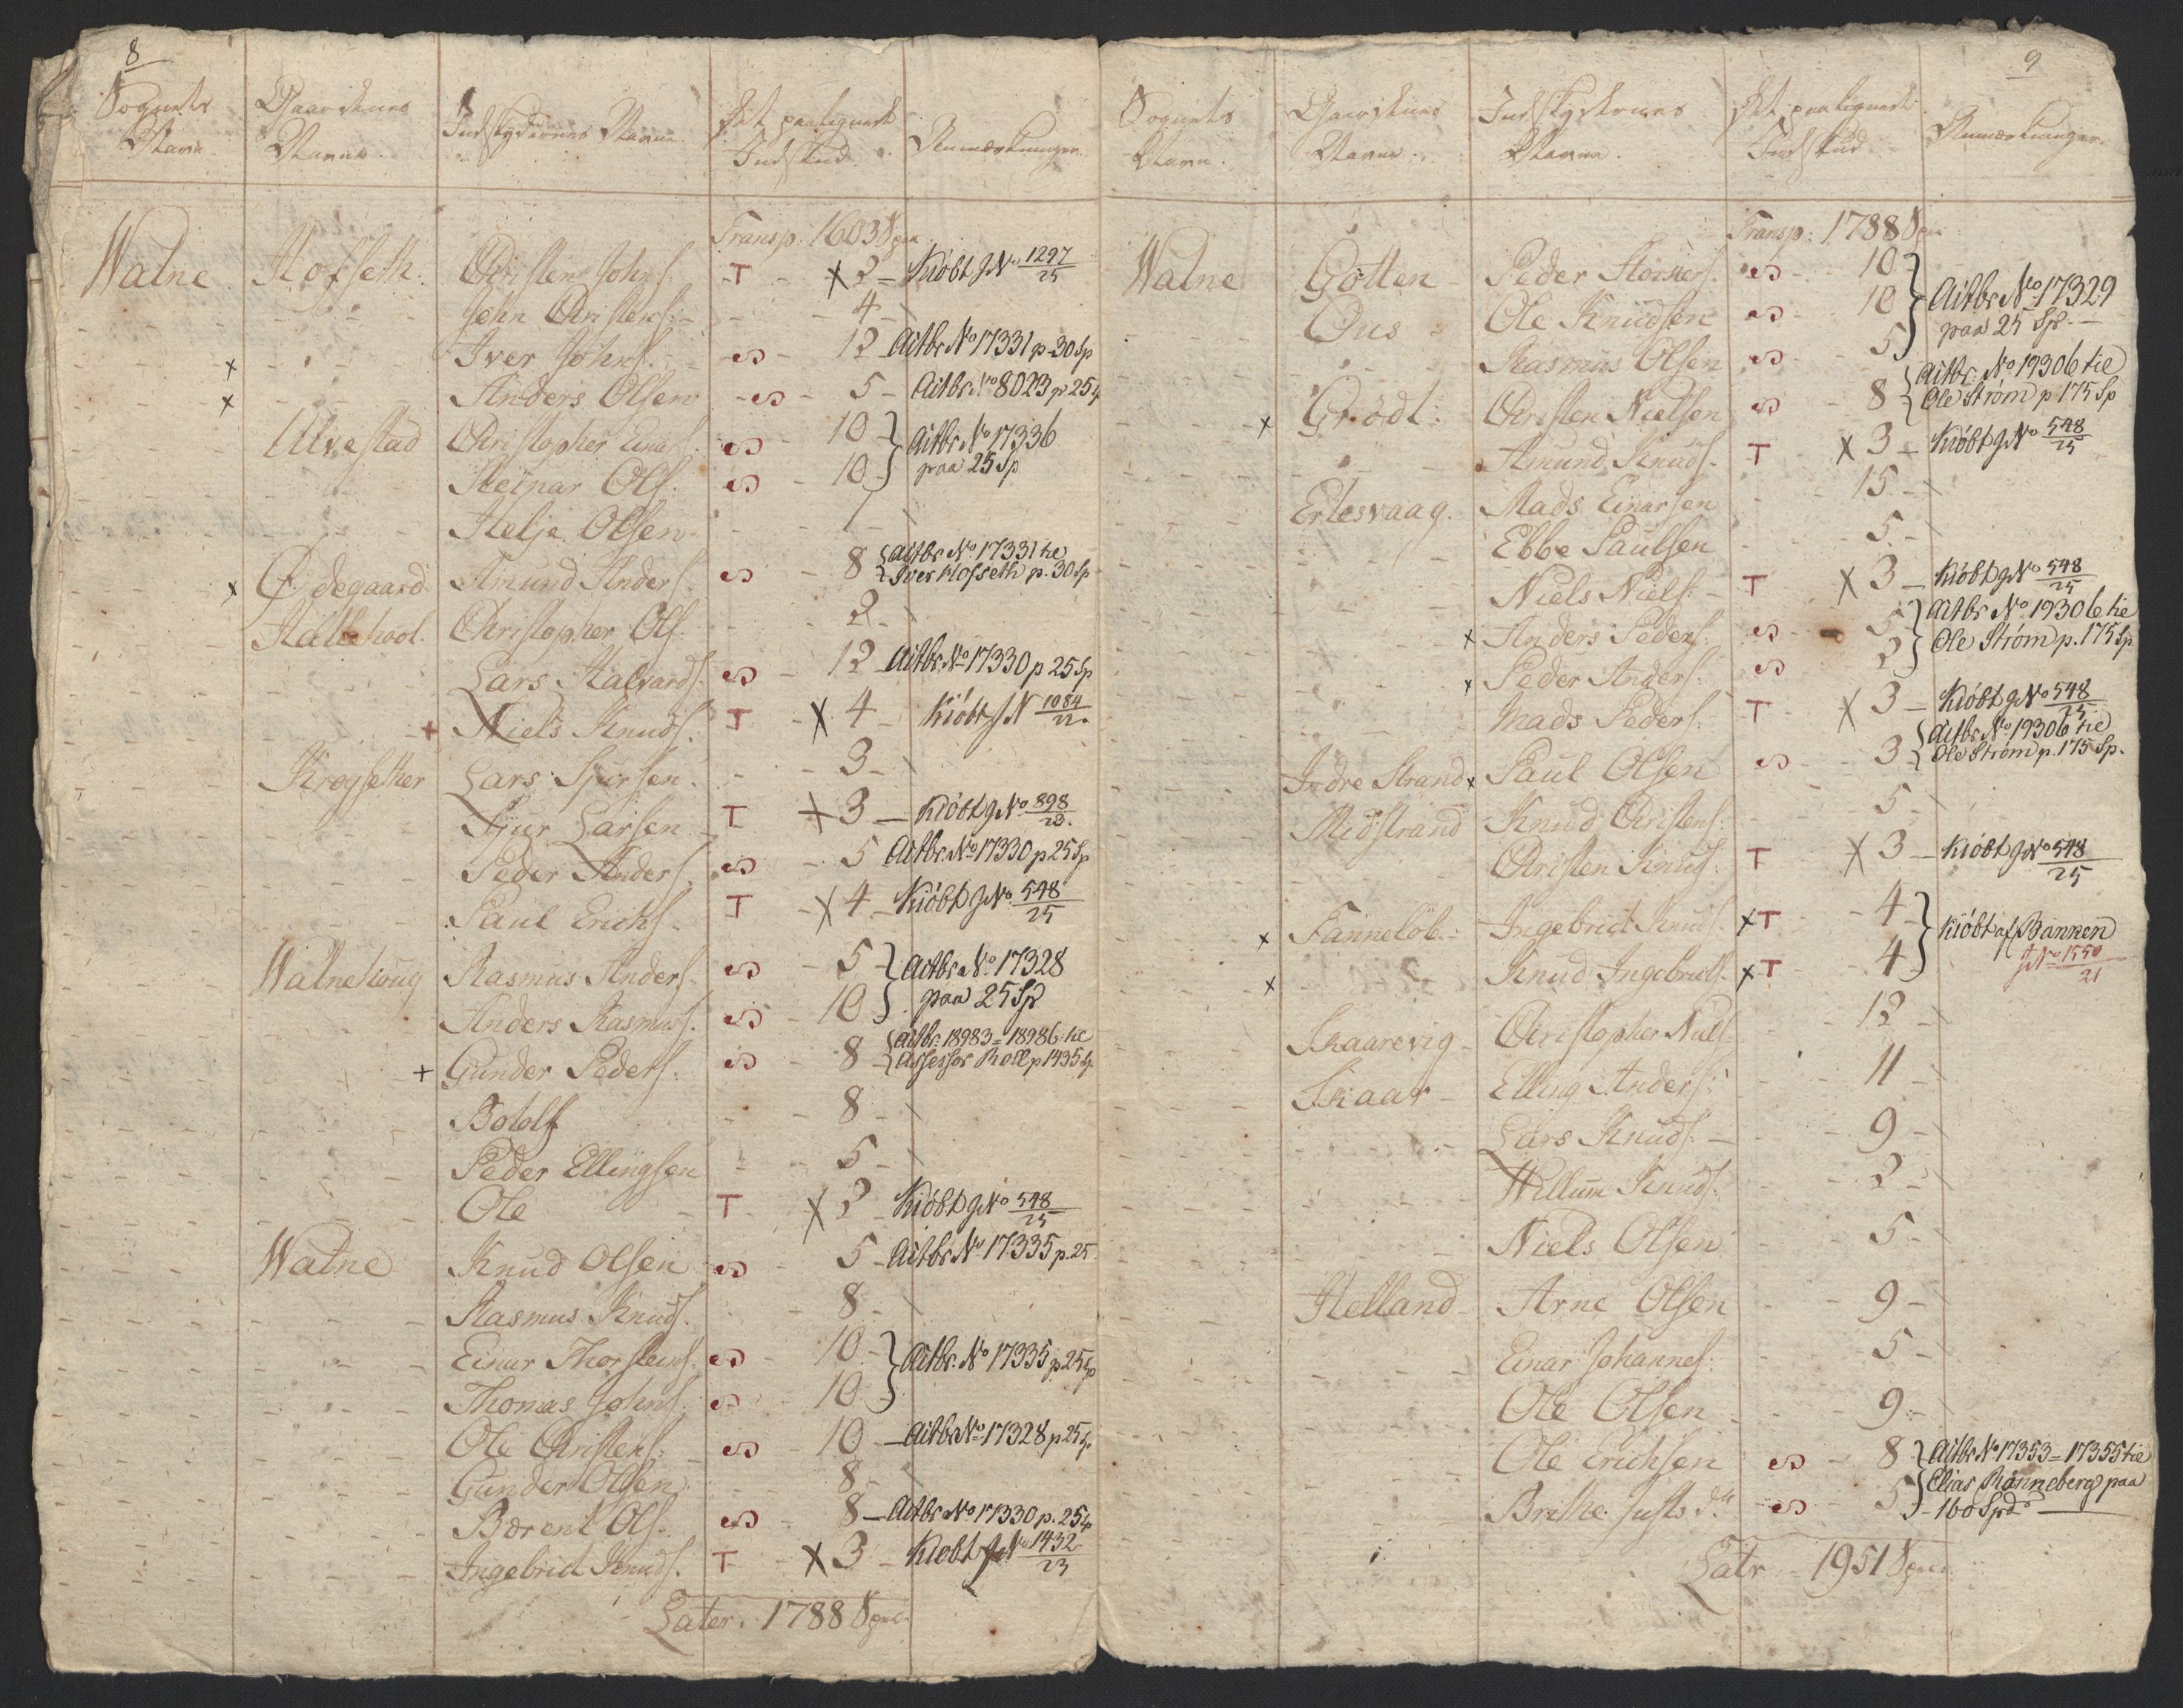 8
Sognets Navn. Gaardenes Navne. Indskydernes Navne. Det paalignede Indskud. Anmærkninger.
Transp. 1603 Spd
Watne Hofseth. Christen Johns. T X 2 Kiöbt J No 1297/25
John Christens. 4
Iver Johns. S 12 Actbr No 17331 p 30 Sp
x Anders Olsen S 5 Actbr. No 8023 p 25 Sp
x Ulvestad Christopher Einars. S 10 } Actbr No 17336
Steinar Ols. S 10 } paa 25 Sp
Helje Olsen 1
x Ødegaard Amund Anders. S 8 { Actbr No 17331 tie Iver Hofseth p. 30 Sp
Hallehool. Christopher Ols. 2
Lars Halvards. S 12 Actbr No 17330 p 25 Sp
+ Niels Knuds. T X 4 Kiöbt J N 1084/22.
Krogsether Lars Sjursen. 3
Sjur Larsen T X 3 Kiöbt J No 898/23.
Peder Anders. S 5 Actbr No 17330 p 25 Sp
Paul Erichs. T X 4 Kiöbt J No 548/25
Watnehoug Rasmus Anders. S 5 } Actbr No 17328
Anders Rasmus. S 10 } paa 25 Sp
+ Gunder Peders. S 8 { Actbr. 18983 = 18986 tie Assessor Roll p 1435 Sp.
Botolf 8
Peder Ellingsen 5
Ole T X 2 Kiöbt J No 548/25
Watne Knud Olsen S 5 Actbr No 17335 p. 25
Rasmus Knuds. 8
Einar Thorsteins. S 10 } Actbr. No 17335 p 25 Sp
Thomas Johns. S 10 }
Ole Christens. S 10 Actbr No 17328 p 25 Sp
Gunder Olsen 8
Bærent Ols. S 8 Actbr No 17330 p. 25 Sp
Ingebrict Knuds. T X 3 Kiöbt J No 1432/23
Later. 1788 Spd
9
Sognets Navn. Gaardenes Navne. Indskydernes Navne. Det paalignede Indskud. Anmærkninger.
Transp: 1788 Spd
Watne Gotten Peder S 10 }
Ous Ole Knudsen S 10 } Actbr No 17329
Rasmus Olsen S 5 } paa 25 Sp.
x Grödt: Christen Nielsen S 8 { Actbr: No 19306 tie Ole Strøm p 175 Sp
Amund Knuds. T X 3 Kiöbt J No 548/25
Erlesvaag. Mads Einarsen 15
Ebbe Paulsen 5
Niels Niels. T X 3 Kiöbt J No 548/25
x Anders Peders. S 5 } Actbr No 19306 tie
x Peder Anders. S 2 } Ole Strøm p. 175 Sp
Mads Peders. T X 3 Kiöbt J No 548/25
Indre Strand x Paul Olsen S 3 { Actbr No 19306 tie Ole Strøm p. 175 Sp.
Midstrand Knud Christens. 5
Christen Knuds. T X 3 Kiöbt J No 548/25
x Fannelöb: Ingebrict Knuds. X T 4 } Kiöbt af Bannen
x Knud Ingebricts. X T 4 } J No 1550/21
Skaarevig Christopher Niels. 12
Skaar Elling Anders. 11
Lars Knuds. 9
Willum Knuds. 2
Niels Olsen 5
Helland Arne Olsen 9
Einar Johannes. 5
Ole Olsen 9
Ole Erichsen S 8 } Actbr No 17353 = 17355 tie
Brithe Justs dr S 5 } Elias Rønneberg paa
160 Spd
Latr 1951 Spd